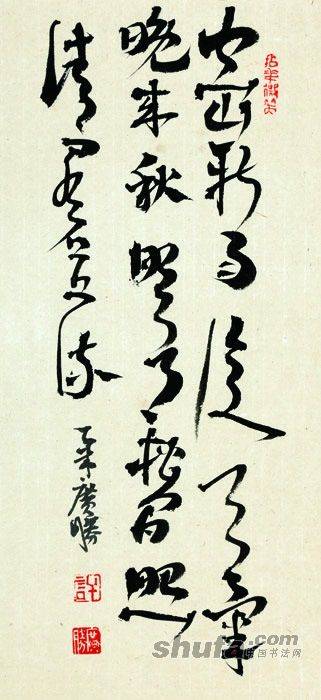 空山新雨後天氣
晚来秋明月松间照
清泉石上流
廣勝
許
shufa.com
中国书法网